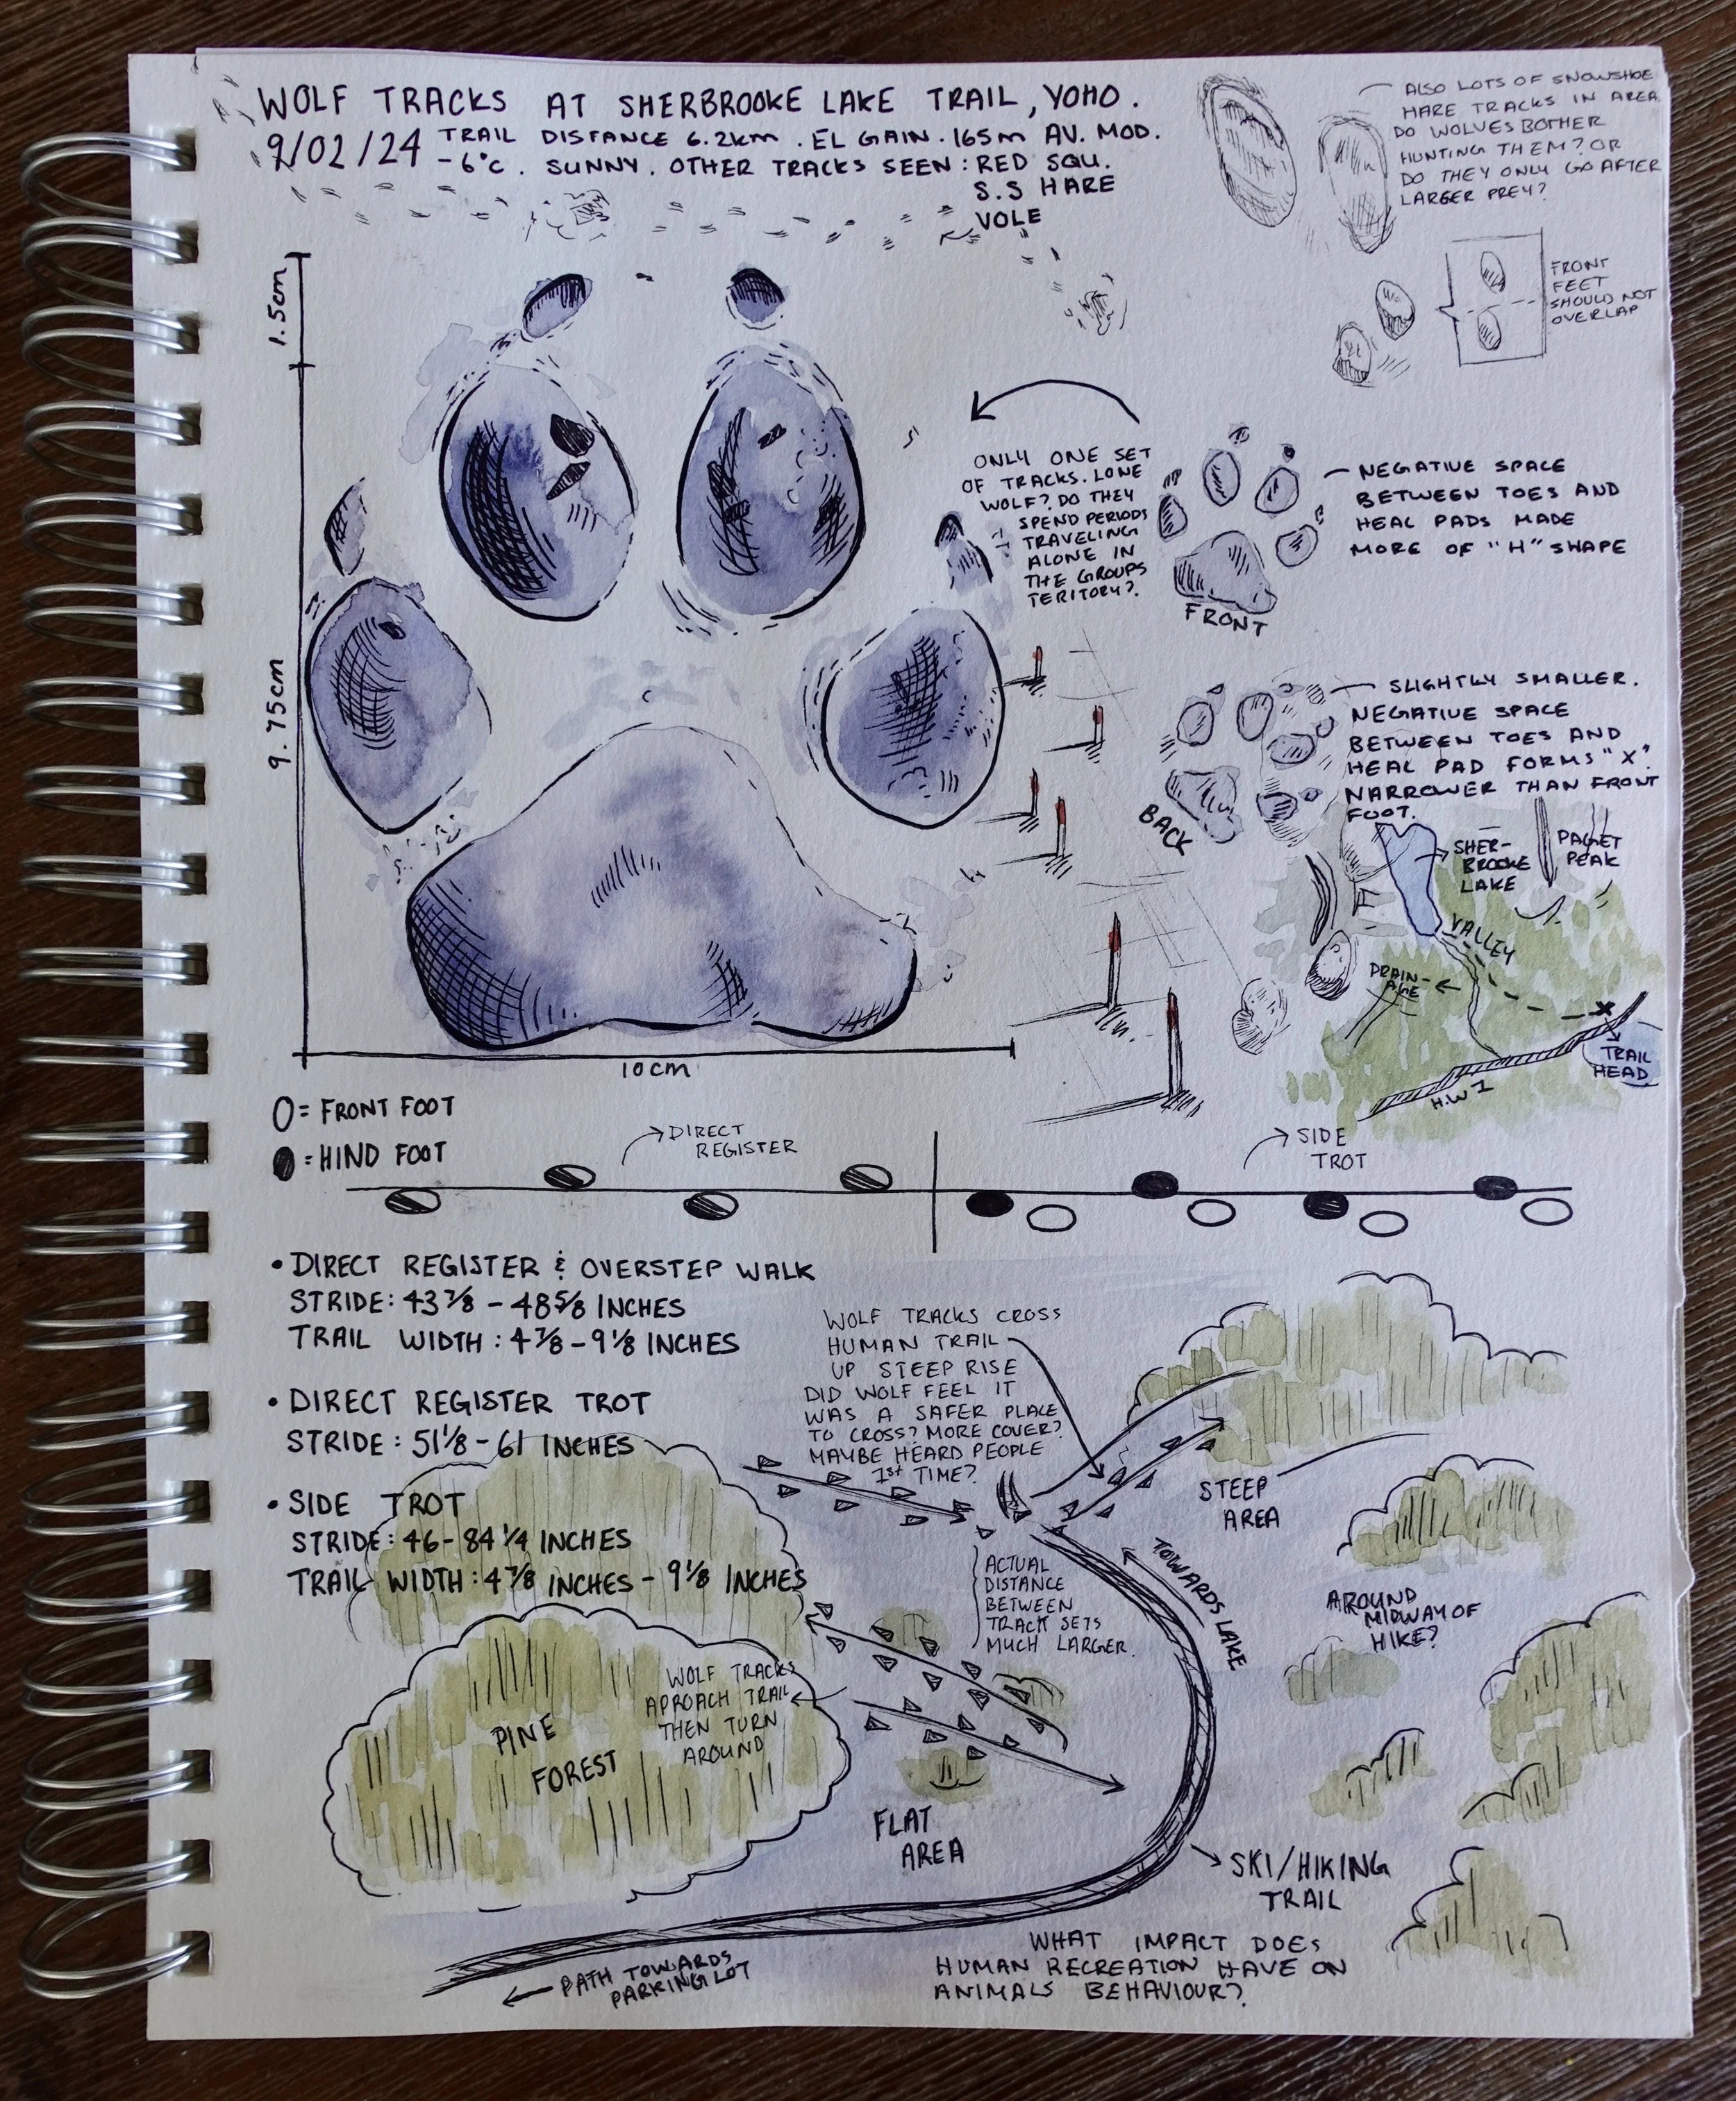 WOLF TRACKS AT SHERBROOKE LAKE TRAIL, YOHO.
9/02/24 TRAIL DISTANCE 6.2km . EL GAIN . 165m AV. MOD.
-6°C. SUNNY. OTHER TRACKS SEEN: RED SQU.
S.S HARE
VOLE
ALSO LOTS OF SNOWSHOE
HARE TRACKS IN AREA.
DO WOLVES BOTHER
HUNTING THEM? OR
DO THEY ONLY GO AFTER
LARGER PREY?
FRONT
FEET
SHOULD NOT
OVERLAP
1.5cm
9.75cm
10cm
ONLY ONE SET
OF TRACKS. LONE
WOLF? DO THEY
SPEND PERIODS
TRAVELING
ALONE IN
THE GROUPS
TERITORY?
NEGATIVE SPACE
BETWEEN TOES AND
HEAL PADS MADE
MORE OF "H" SHAPE
FRONT
SLIGHTLY SMALLER.
NEGATIVE SPACE
BETWEEN TOES AND
HEAL PAD FORMS "X".
NARROWER THAN FRONT
FOOT.
BACK
SHER-
BROOKE
LAKE
PAGET
PEAK
VALLEY
DRAIN-
AGE
X
TRAIL
HEAD
H.W 1
O = FRONT FOOT
= HIND FOOT
DIRECT
REGISTER
SIDE
TROT
• DIRECT REGISTER & OVERSTEP WALK
STRIDE: 43 7/8 - 48 5/8 INCHES
TRAIL WIDTH: 4 7/8 - 9 1/8 INCHES
• DIRECT REGISTER TROT
STRIDE: 51 1/8 - 61 INCHES
• SIDE TROT
STRIDE: 46 - 84 1/4 INCHES
TRAIL WIDTH: 4 7/8 INCHES - 9 1/8 INCHES
WOLF TRACKS CROSS
HUMAN TRAIL
UP STEEP RISE
DID WOLF FEEL IT
WAS A SAFER PLACE
TO CROSS? MORE COVER?
MAYBE HEARD PEOPLE
1st TIME?
STEEP
AREA
ACTUAL
DISTANCE
BETWEEN
TRACK SETS
MUCH LARGER.
TOWARDS LAKE
AROUND
MIDWAY OF
HIKE?
WOLF TRACKS
APROACH TRAIL
THEN TURN
AROUND
PINE
FOREST
FLAT
AREA
SKI/HIKING
TRAIL
PATH TOWARDS
PARKING LOT
WHAT IMPACT DOES
HUMAN RECREATION HAVE ON
ANIMALS BEHAVIOUR?